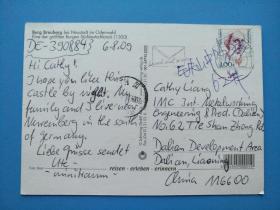 Burg Breuberg bei Neustadt im Odenwald
Eine der größten Burgen Süddeutschlands (1200)
DE-390884 6.8.09
Hi Cathy!
I hope you like this
castle by night. My
family and I live near
Nuremberg in the south
of Germany.
Liebe Grüsse sendet
Ute
100
Cathy Liang
IMC Int. Metalworking
Engineering (Prod. (Dalian)
No. 62 Tie Shan Zhong Rd.
Dalian Development Area
Dalian, Liaoning
China 116600
reisen · erleben · erinnern